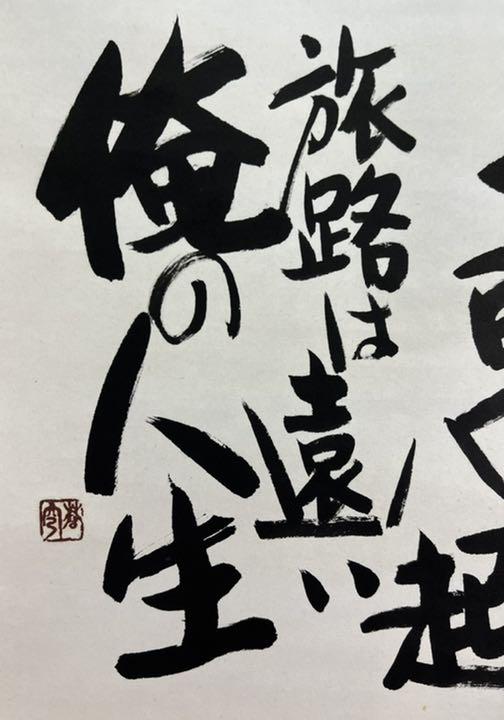 旅路は遠い
俺の人生